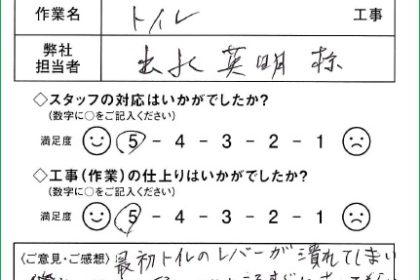 作業名 トイレ 工事
弊社
担当者 出水 英明 様
◇スタッフの対応はいかがでしたか?
(数字に○をご記入ください)
満足度 5 - 4 - 3 - 2 - 1
◇工事(作業)の仕上りはいかがでしたか?
(数字に○をご記入ください)
満足度 5 - 4 - 3 - 2 - 1
〈ご意見・ご感想〉 最初トイレのレバーが潰れてしまい